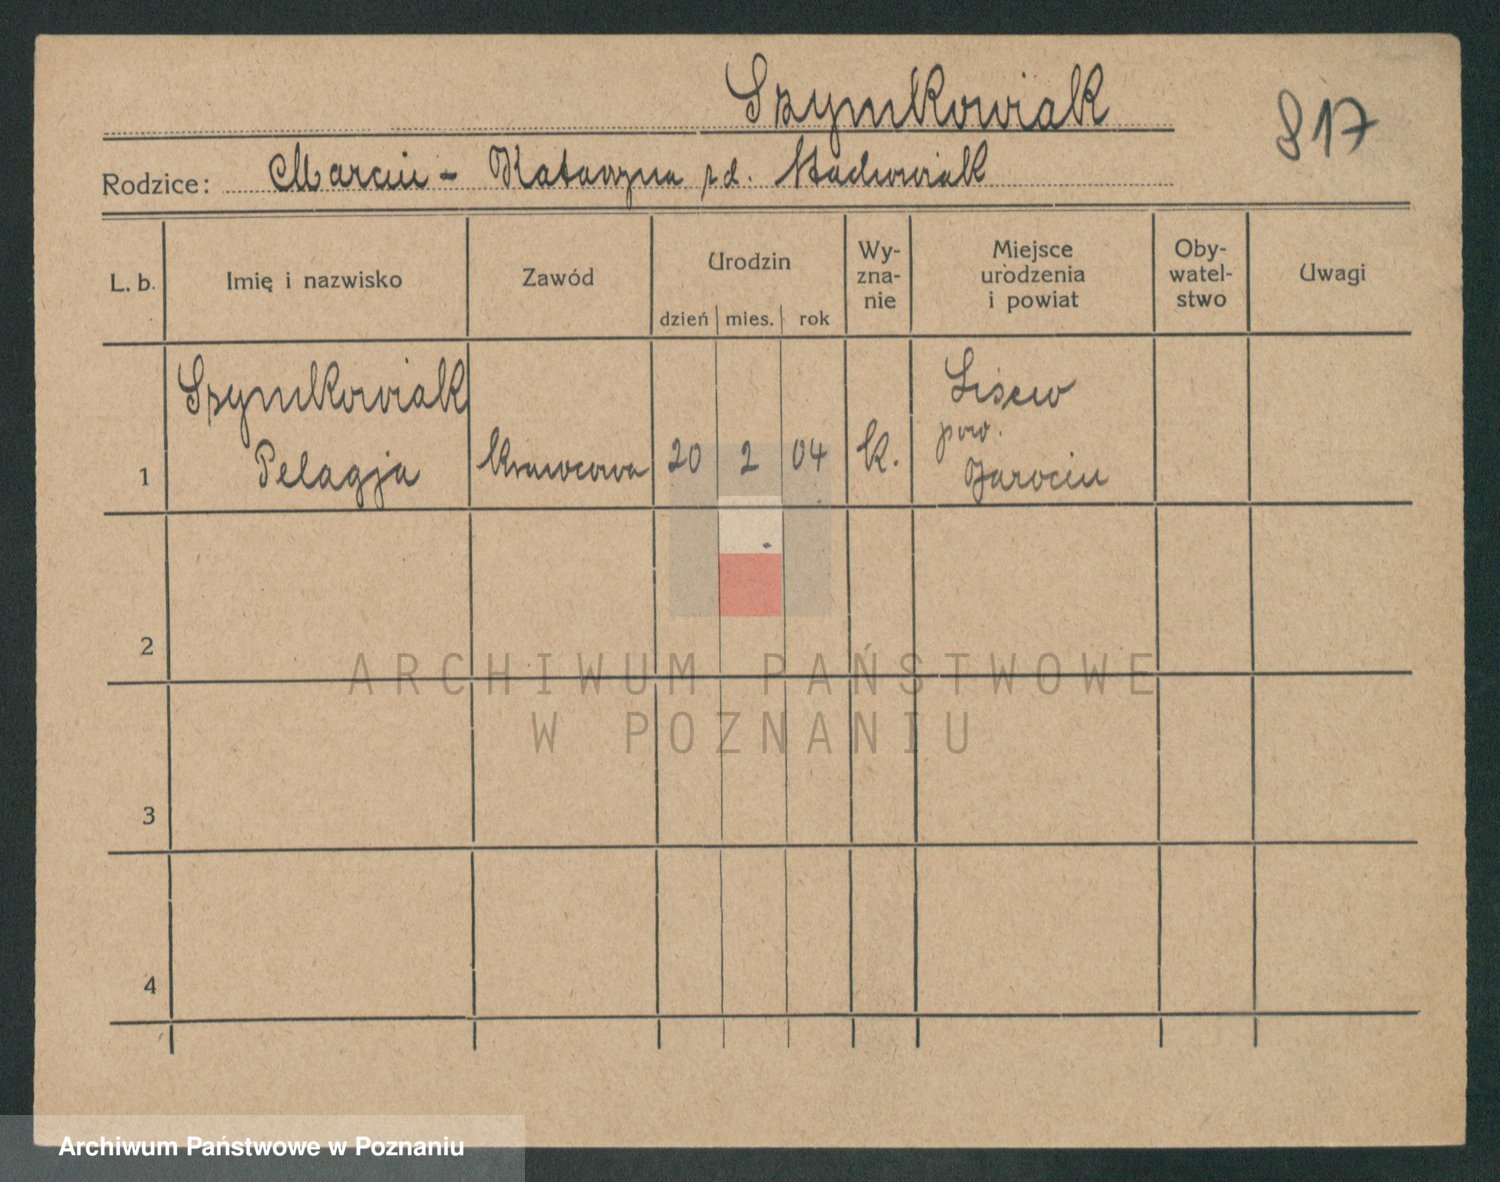 Szymkowiak
817
Rodzice: Marcin - Katarzyna zd. Stachowiak
L. b. Imię i nazwisko Zawód Urodzin Wy-zna-nie Miejsce urodzenia i powiat Oby-watel-stwo Uwagi
dzień mies. rok
Szymkowiak Pelagja
1 Krawcowa 20 2 04 K. pow. Jarocin
2
3
4
ARCHIWUM PAŃSTWOWE
W POZNANIU
Archiwum Państwowe w Poznaniu